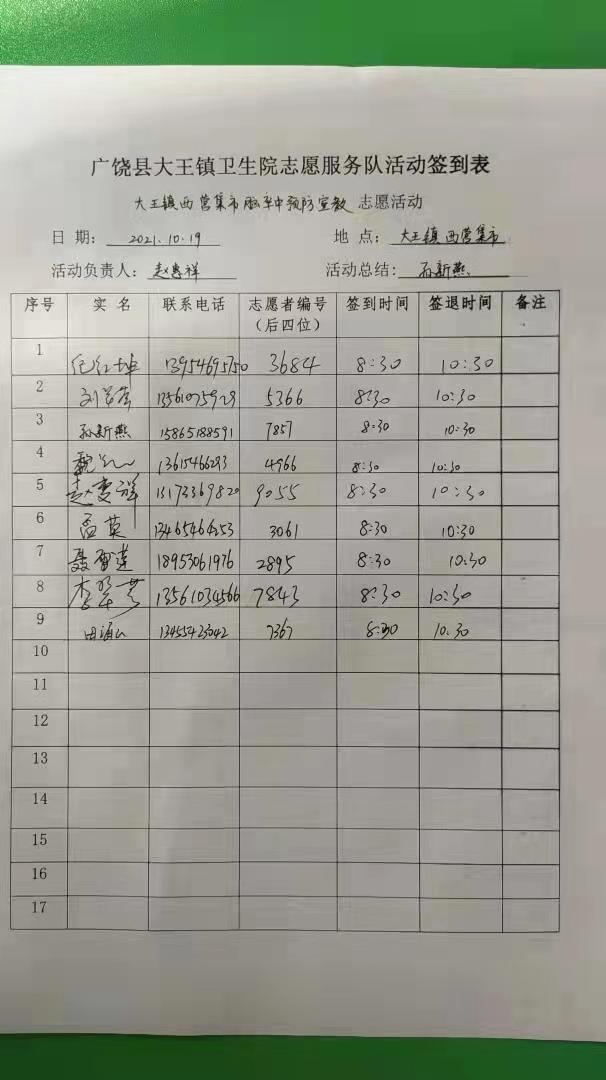 广饶县大王镇卫生院志愿服务队活动签到表
大王镇西营集市脑卒中预防宣教 志愿活动
日 期： 2021.10.19 地 点： 大王镇西营集市
活动负责人： 赵惠祥 活动总结： 孙新燕
序号 实 名 联系电话 志愿者编号（后四位） 签到时间 签退时间 备注
1 13954695750 3684 8:30 10:30
2 13561075929 5366 8:30 10:30
3 孙新燕 15865188591 7857 8:30 10:30
4 13615466293 4966 8:30 10:30
5 13173369820 9055 8:30 10:30
6 孟英 3061 8:30 10:30
7 18953061976 2895 8:30 10:30
8 13561034566 7843 8:30 10:30
9 13455423042 7367 8:30 10:30
10
11
12
13
14
15
16
17